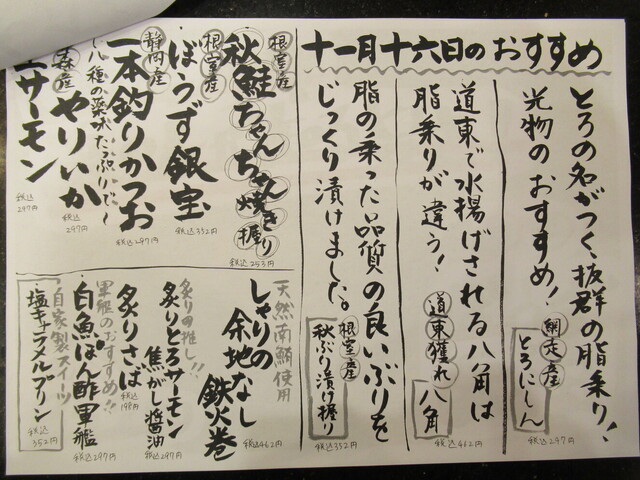 十一月十六日のおすすめ
とろの名がつく、抜群の脂乗り!
光物のおすすめ!
網走産
とろにしん
税込297円
道東で水揚げされる八角は
脂乗りが違う!
道東獲れ
八角
税込462円
脂の乗った品質の良いぶりを
じっくり漬けました。
根室産
秋ぶり漬け握り
税込352円
根室産
秋鮭ちゃんちゃん焼き握り
税込253円
根室産
ぼうず銀宝
税込352円
静岡産
一本釣りかつお
八種の薬味たっぷりで〜
税込297円
やりいか
税込297円
サーモン
税込297円
天然南鮪使用
しゃりの
余地なし
鉄火巻
税込462円
炙りの推し!!
炙りとろサーモン
焦がし醤油
税込297円
炙りさば
税込198円
軍艦のおすすめ!!
白魚ぽん酢軍艦
税込297円
自家製スイーツ
塩キャラメルプリン
税込352円